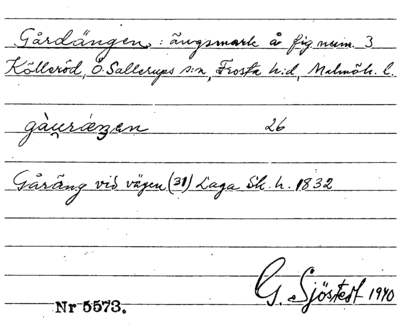 Gårdängen : ängsmark å fig. num. 3
Kölleröd, Ö. Sallerups s:n, Frosta h:d, Malmöh. l.
26
Gåräng vid vägen (31) Laga Sk. h. 1832
G. Sjöstedt 1940
Nr 5573.